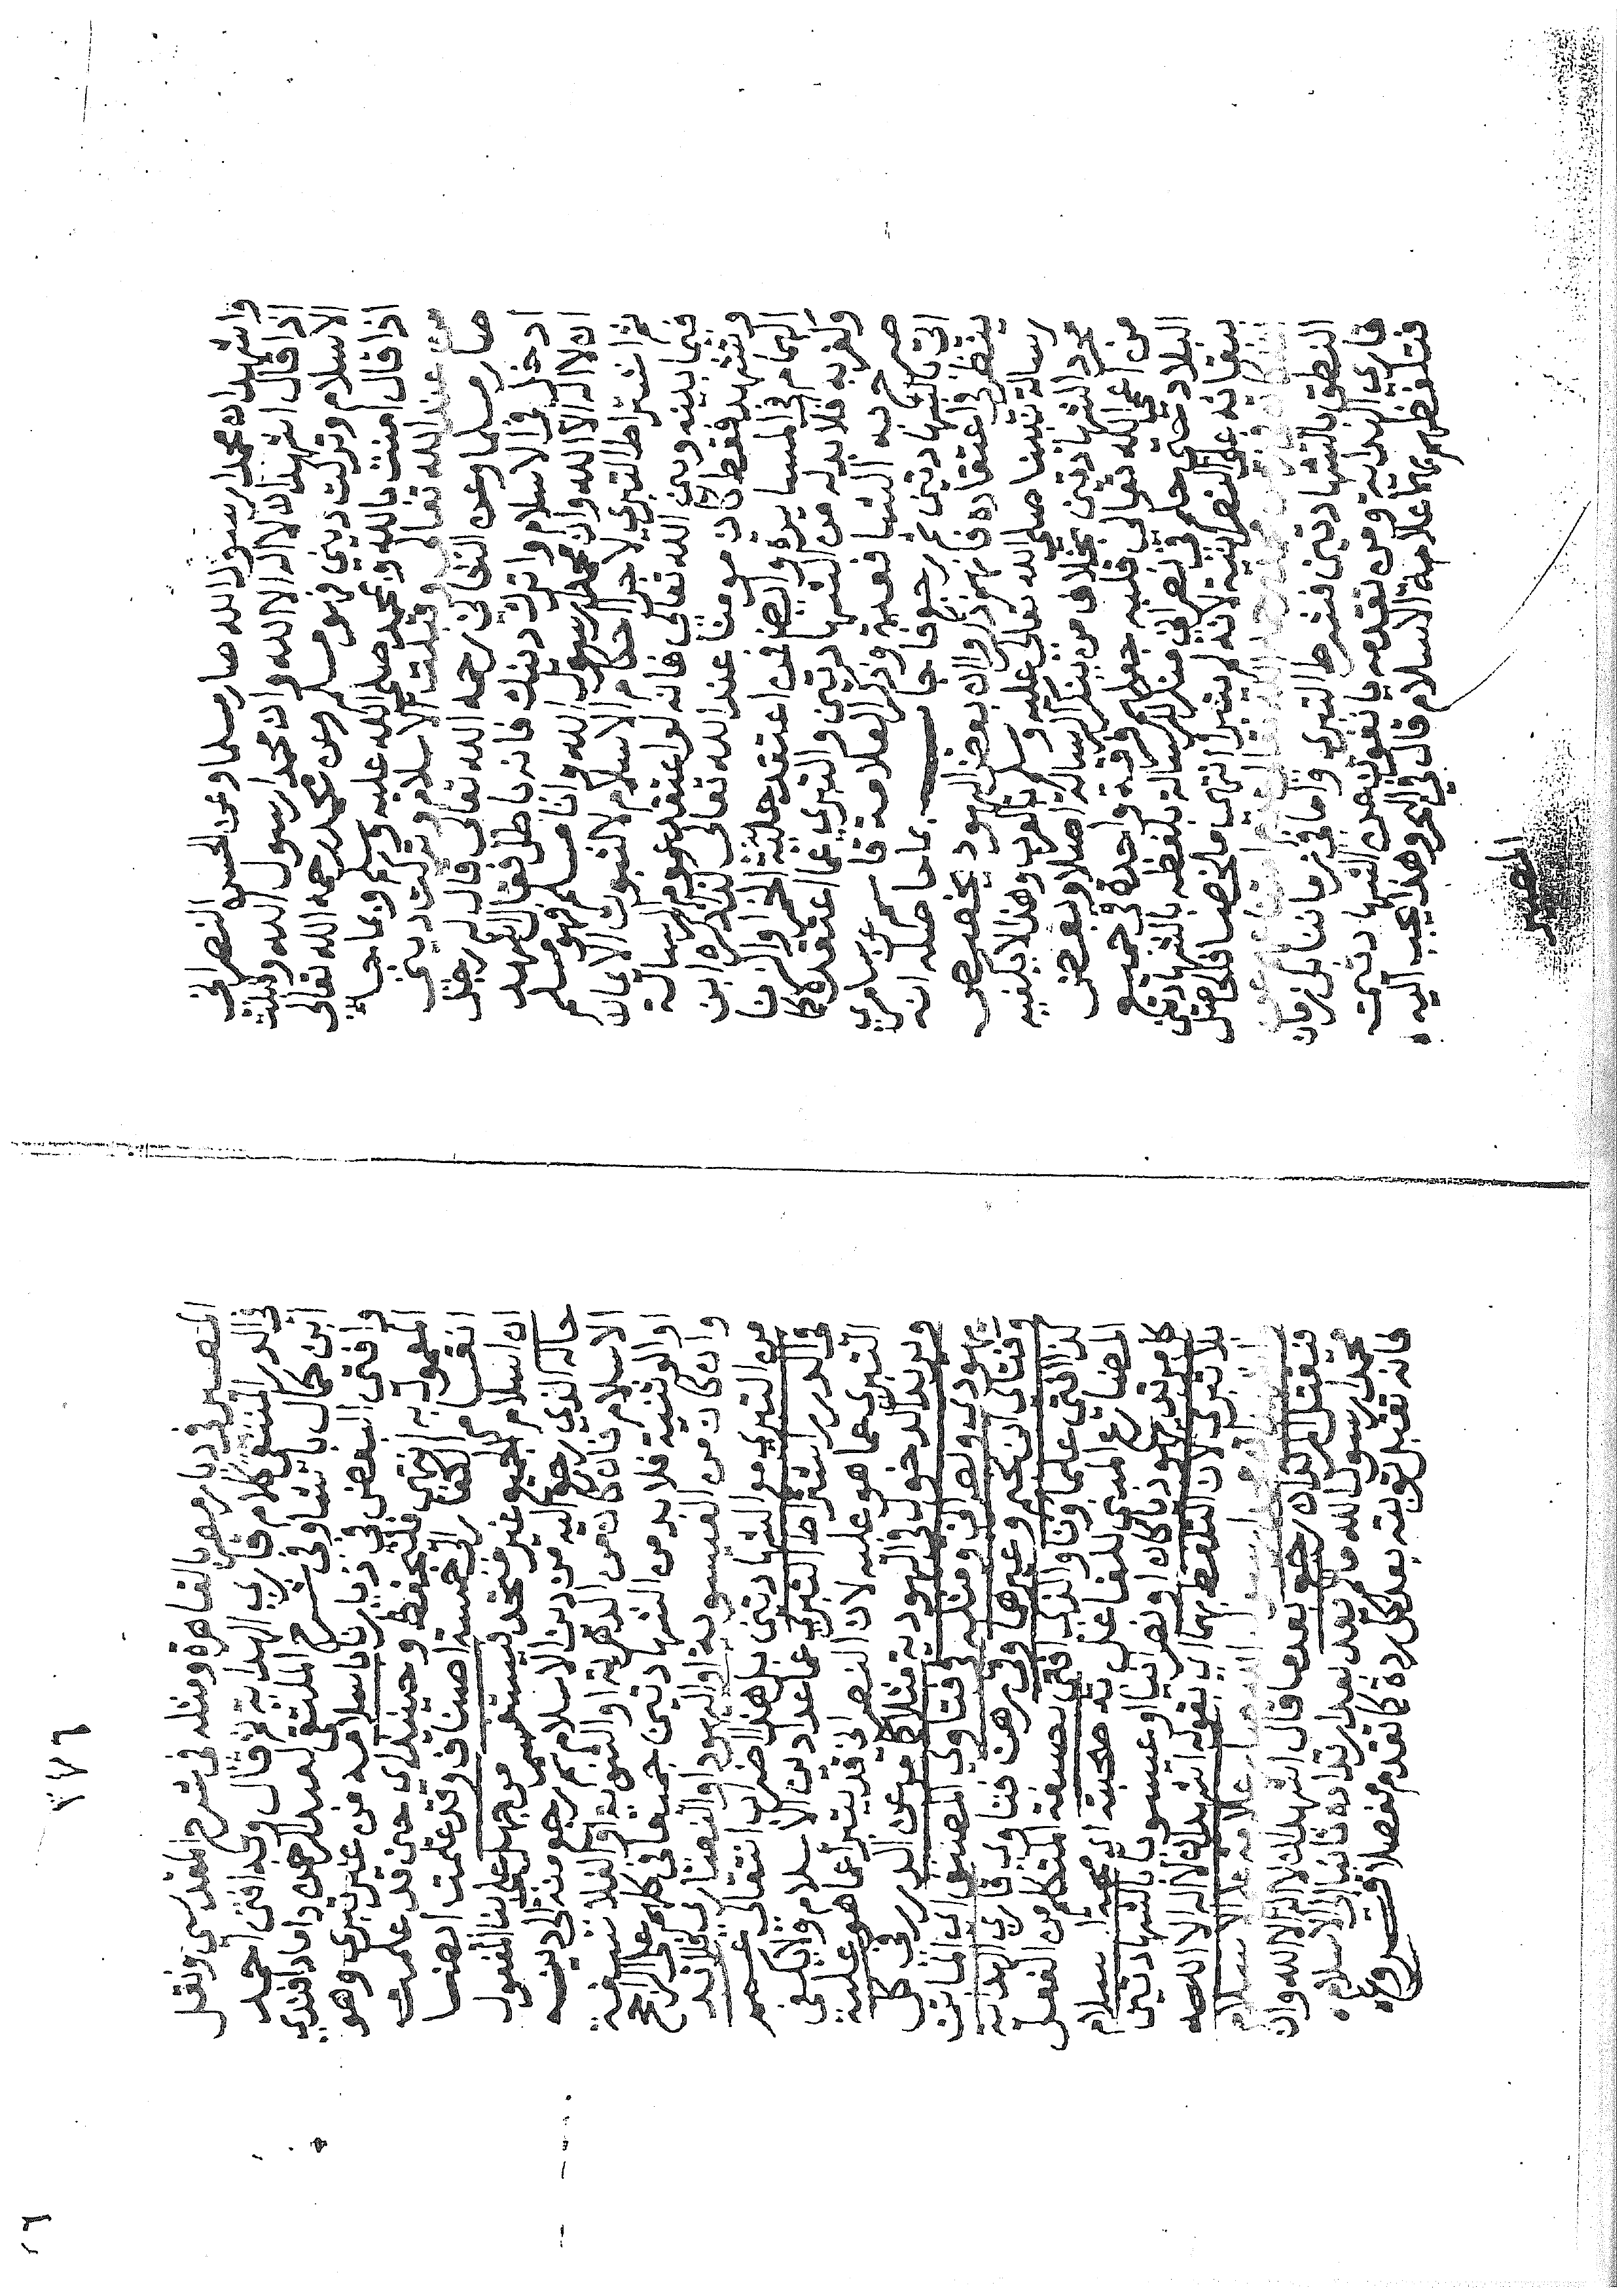 واشهد ان محمدا رسول الله صار مسلما وعن الحسن النصراني
اذا قال اشهد ان لا اله الا الله وان محمدا رسول الله وقبلت
الاسلام وتركت ديني فهو مسلم وعن محمد رحمه الله تعالى
اذا قال امنت بالله وبمحمد صلى الله عليه وسلم وبما جاء
من عند الله تعالى وقبلت الاسلام وتركت ديني
صار مسلما وعن رحمه الله تعالى قال له رجل
ادخل في الاسلام واترك دينك فانه باطل فقال اشهد
ان لا اله الا الله وان محمدا رسول الله وانا مسلم فهو مسلم
ثم اشتراط التبري لاجرا احكام الاسلام لا لثبوت الايمان
فيما بينه وبين الله تعالى فانه لو اعتقد عموم الرسالة
وتشهد فقط كان مومنا عند الله تعالى ذكره ابن
الهمام في المسايره وايضا من اعتقد حلية الخمر والزنا
وكفر به فلا بد له من الشهادتين والتبري عما اعتقده كما
صرح به الشافعية وذكر العلامة قاسم
اتى بالشهادتين ثم رجع فاجاب بما حاصله انه
ينظر في اعتقاده فانهم ذكروا ان بعض اليهود يخصص
رسالة نبينا صلى الله تعالى عليه وسلم بالعرب وهذا لا يكفيه
مجرد الشهادتين بخلاف من ينكر الرسالة اصلا وبعض
من اعمى الله تعالى قلبه جعلهم فرقة واحدة في جميع
البلاد حتى حكم في نصراني منكر للرسالة بلفظه بالشهادتين
ببقائه على النصرانية لانه لم يتبرأ انتهى ملخصا
النطق بالشهادتين فشرط التبري واما في زماننا بل زمان
قارئ الهداية ومن تقدمه يا نفون عن الشهادتين
فتلفظهم بهما علامة الاسلام قال في البحر وهذا يجب
المصير
٢٧٦
المصير في ديار مصر بالقاهرة ومثله في شرح المقدسي ونقل
في الدر المنتقى كلام قاري الهداية ثم قال وبه افتى احمد
ابن كمال باشا وفي شرح الملتقى لعبد الرحمن داماد افندي
وافتى البعض في ديارنا باسلامه من غير تبري وهو
المعمول به انتهى فليحفظ وحينئذ اي حين قد علمت
انقسام الكفار الى خمسة اصناف وقد علمت ايضا
ان اسلام الجميع غير متحد يستفسر من جهل علينا المنقول
حاله الذي رجع اليه من دين الاسلام ثم رجع منه الى دينه
الاسلام فان كان من الدهرية او الثنوية او الفلاسفة
او الوثنية فلا بد من الشهادتين جميعا في كلهم على الراجح
وان كان من العيسوية او اليهود او النصارى فلا بد
من التبري مع الشهادتين بل هذا اضراب انتقالي عمم
في الدرر اشتراط التبري عما عدا دين الاسلام ولا يكفي
التبري عما هو عليه لان النصراني قد يتبرأ عما هو عليه
ويريد الدخول في اليهودية مثلا كما مر عن الدرر في كل
يهودي ونصراني ومثله في فتاوي المصنف اي الماتن
وفتاوي ابن نجيم وغيرهما وفي رهن فتاوي قاري الهداية
كذا افتى علماؤنا والذي افتى به
المضارع المبني للفاعل به صحته اي اسلام
كافر ذي يهوديا كان او نصرانيا او عيسوي بالشهادتين
بلا تبري لان التلفظ بهما اي بقوله اشهد ان لا اله الا الله
صار علامة على الاسلام
فيقتل ان رجع بعد ما قال اشهد ان لا اله الا الله وان
محمد رسول الله ما لم يعد بعد ارتداده ثانيا الى الاسلام
فانه تقبل توبته بعد كل ردة كما تقدم مفصلا فروع